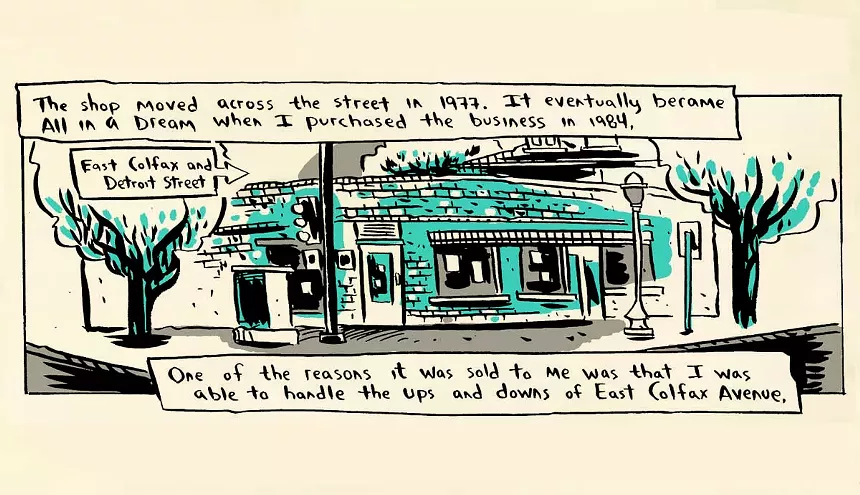 The shop moved across the street in 1977. It eventually became
All in a Dream when I purchased the business in 1984.
East Colfax and
Detroit Street
One of the reasons it was sold to me was that I was
able to handle the ups and downs of East Colfax Avenue.